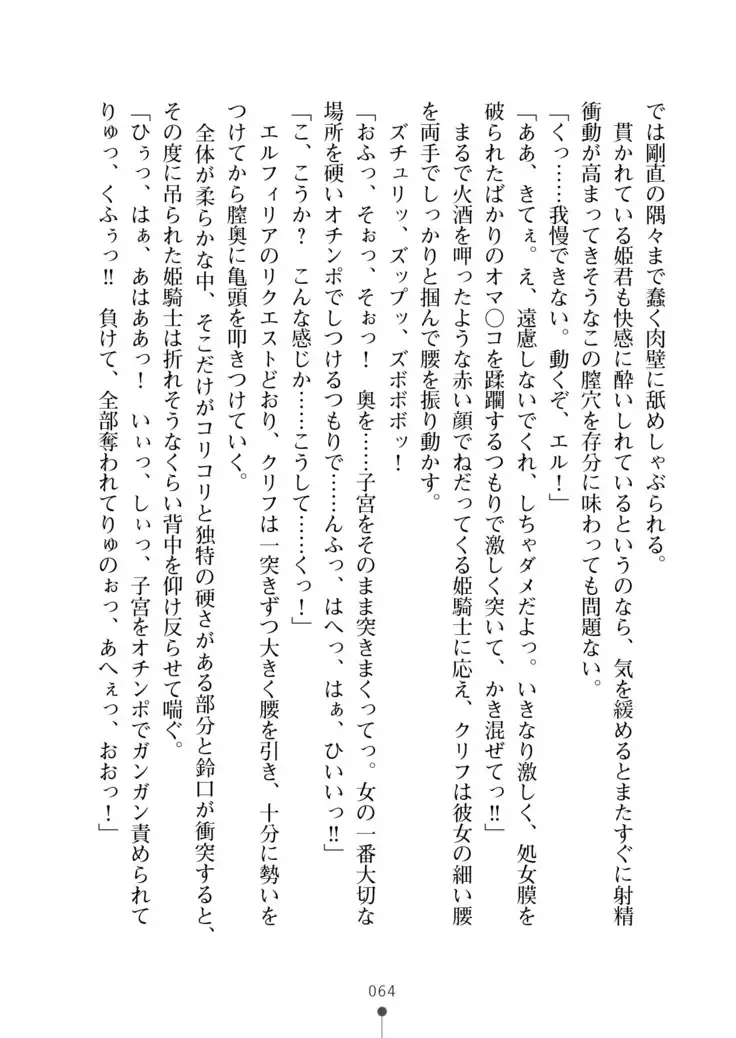 では剛直の隅々まで蠢く肉壁に舐めしゃぶられる。
　貫かれている姫君も快感に酔いしれているというのなら、気を緩めるとまたすぐに射精
衝動が高まってきそうなこの膣穴を存分に味わっても問題ない。
「くっ……我慢できない。動くぞ、エル！」
「ああ、きてぇ。え、遠慮しないでくれ、しちゃダメだよっ。いきなり激しく、処女膜を
破られたばかりのオマ〇コを蹂躙するつもりで激しく突いて、かき混ぜてっ‼」
　まるで火酒を呷ったような赤い顔でねだってくる姫騎士に応え、クリフは彼女の細い腰
を両手でしっかりと掴んで腰を振り動かす。
　ズチュリッ、ズップッ、ズボボボッ！
「おふっ、そぉっ、そぉっ！　奥を……子宮をそのまま突きまくってっ。女の一番大切な
場所を硬いオチンポでしつけるつもりで……んふっ、はへっ、はぁ、ひいいっ‼」
「こ、こうか？　こんな感じか……こうして……くっ！」
　エルフィリアのリクエストどおり、クリフは一突きずつ大きく腰を引き、十分に勢いを
つけてから膣奥に亀頭を叩きつけていく。
　全体が柔らかな中、そこだけがコリコリと独特の硬さがある部分と鈴口が衝突すると、
その度に吊られた姫騎士は折れそうなくらい背中を仰け反らせて喘ぐ。
「ひぅっ、はぁ、あはああっ！　いぃっ、しぃっ、子宮をオチンポでガンガン責められて
りゅっ、くふぅっ‼　負けて、全部奪われてりゅのぉっ、あへぇっ、おおっ！」
064